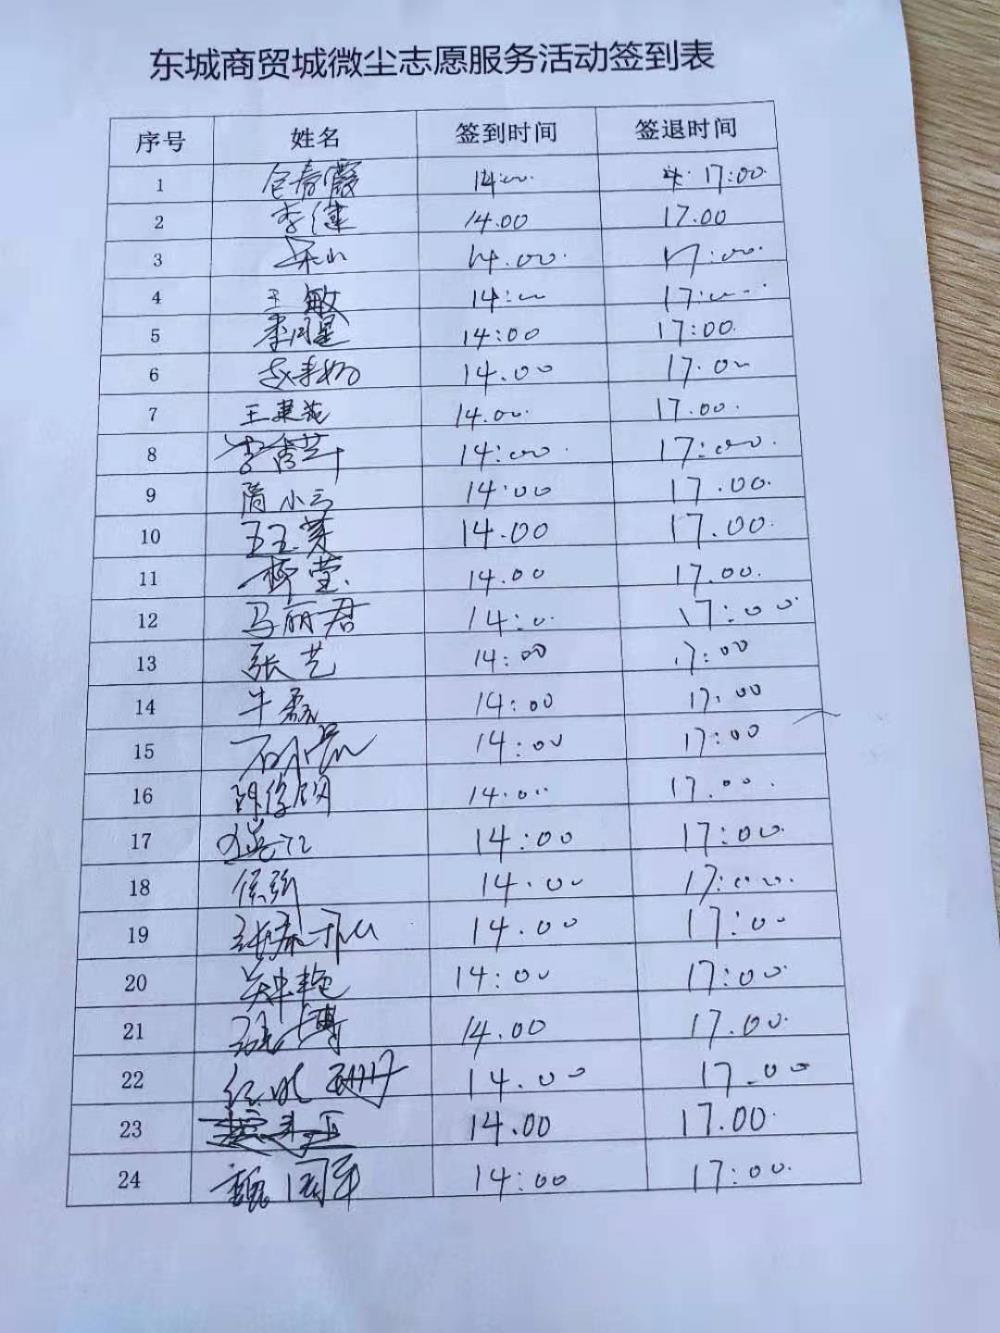 东城商贸城微尘志愿服务活动签到表
序号 姓名 签到时间 签退时间
1 仝春霞 14:00 17:00
2 李健 14.00 17.00
3 14.00 17:00
4 王敏 14:00 17:00
5 季同星 14:00 17:00
6 14.00 17.00
7 王建苑 14.00 17.00
8 李香兰 14:00 17:00
9 隋小云 14:00 17.00
10 王玉芽 14.00 17.00
11 柳莹 14.00 17.00
12 马丽君 14:00 17:00
13 张艺 14:00 17:00
14 牛磊 14:00 17.00
15 14:00 17:00
16 14:00 17.00
17 14:00 17:00
18 侯强 14.00 17:00
19 14.00 17:00
20 关忠艳 14:00 17:00
21 14.00 17.00
22 14.00 17.00
23 14.00 17.00
24 魏国军 14:00 17:00